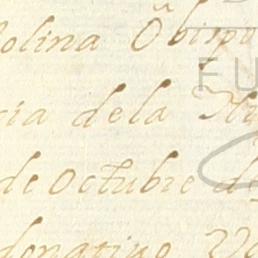 olina Obispo
cia dela
de octubre de
donatiuo